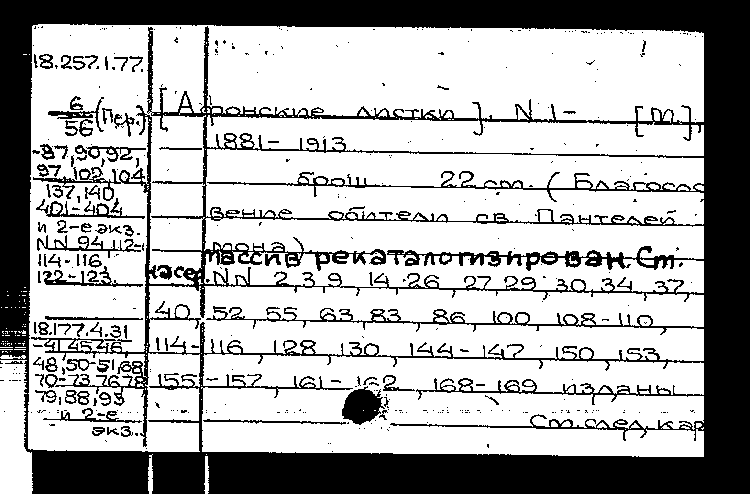 18.257.1.77.
6
56 (Пер.)
-87,90,92,
97,102,104
137,140,
401-404
и 2-е экз.
NN 94,112-
114-116,
122-123.
18.177.4.31
-41,45,46,
48,50-51,68
70-73,76,78
79,88,93
и 2-е
экз.
[Афонские листки]. N 1- [М.],
1881-1913
брош 22 см. (Благосло
вение обители св. Пантелей
мона)
массив рекаталогизирован. См.
NN 2,3,9, 14,26, 27,29, 30,34, 37,
40, 52, 55, 63, 83, 86, 100, 108-110,
114-116, 128, 130, 144-147, 150, 153,
155-157, 161-162, 168-169 изданы
См. след. кар